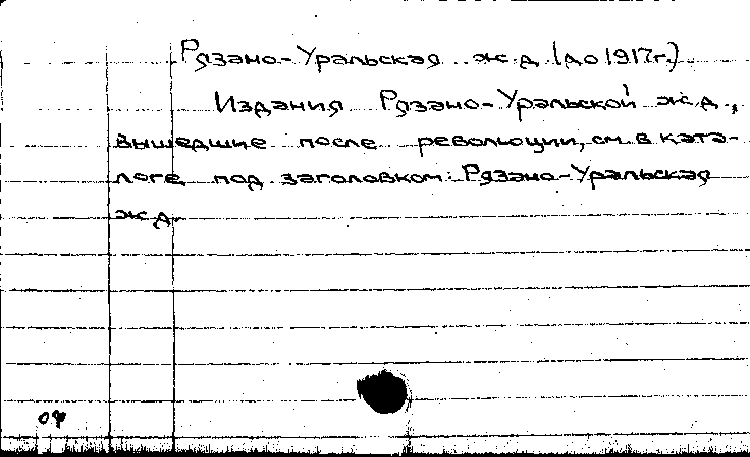 Рязано-Уральская ж.д. (до 1917г.)
Издания Рязано-Уральской ж.д.,
вышедшие после революции, см. в ката-
логе под заголовком: Рязано-Уральская
ж.д.